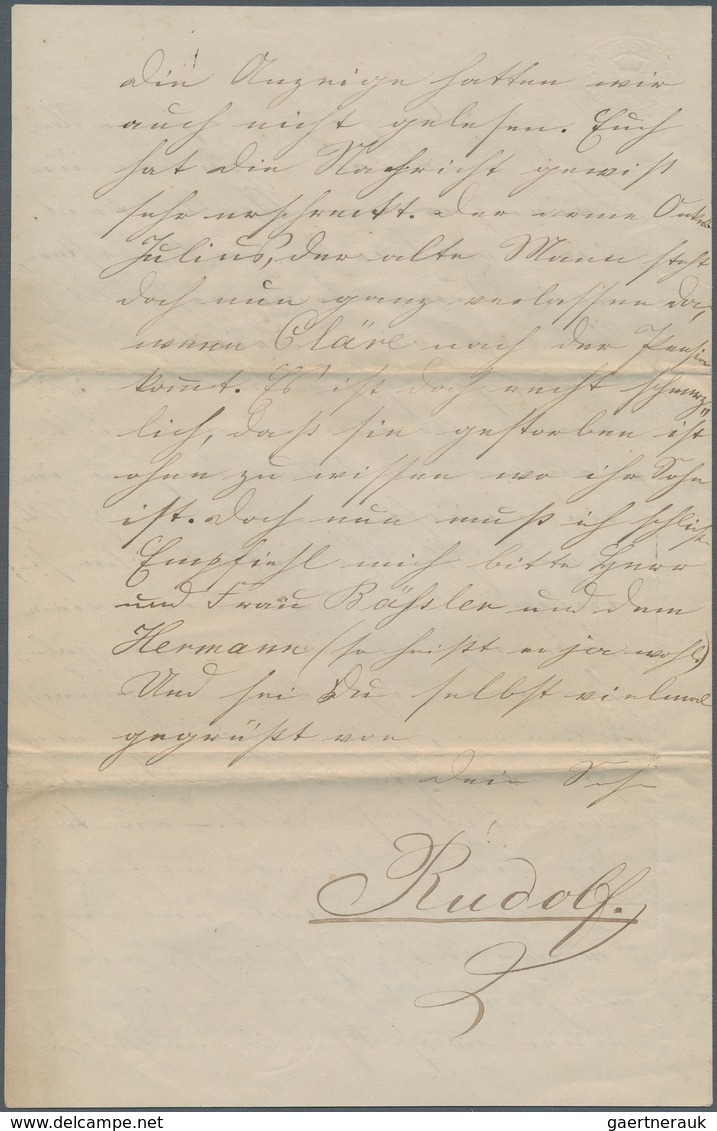 die Anzeige hatten wir
auch nicht gelesen. Euch
hat die Nachricht gewiß
sehr erschreckt. Der arme Onkel
Julius, der alte Mann steht
doch nun ganz verlassen da,
wenn Cläre nach der Pension
kommt. Es ist doch recht schmerz"
lich, daß sie gestorben ist
ohne zu wissen wo ihr Sohn
ist. Doch nun muß ich schließ
Empfiehl mich bitte Herr
und Frau Bäßler und dem
Hermann (so heißt er ja wohl.)
Und sei Du selbst vielmal
gegrüßt von
Dein Sohn
Rudolf.
www.delcampe.net
gaertnerauk